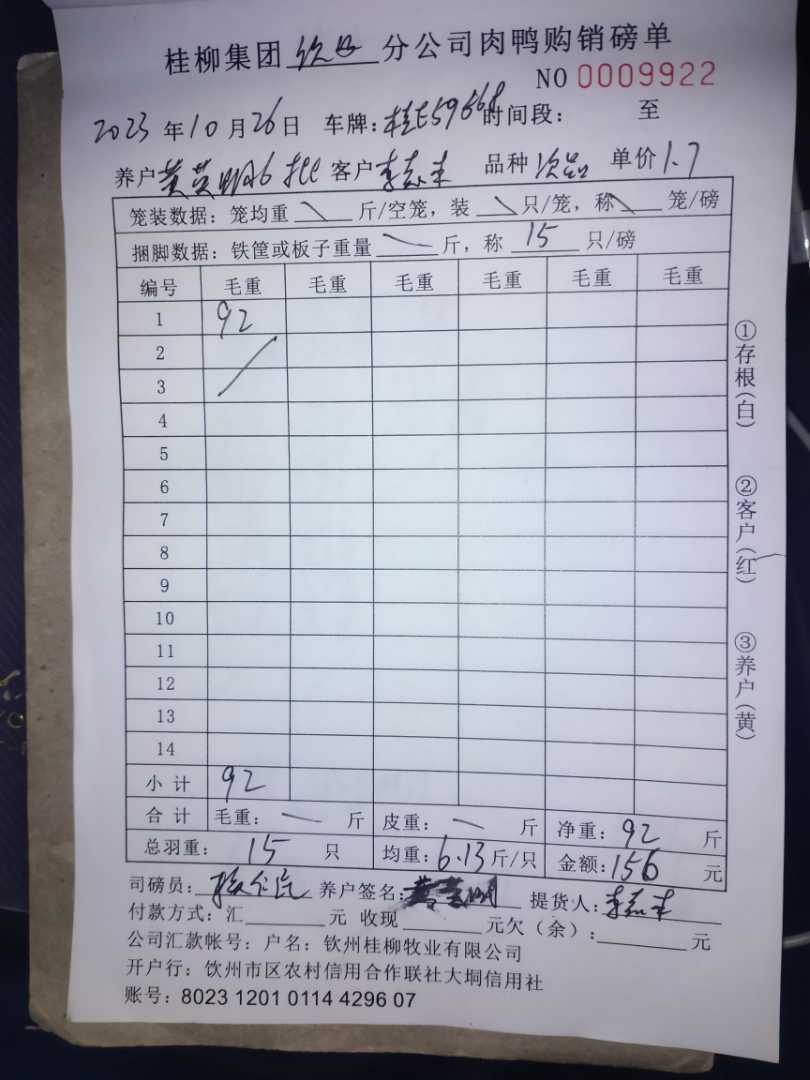 桂柳集团 钦州 分公司肉鸭购销磅单
NO 0009922
2023年10月26日 车牌:桂E59668 时间段: 至
养户黄英明6批 客户李嘉丰 品种次品 单价1.7
笼装数据: 笼均重 斤/空笼, 装 只/笼, 称 笼/磅
捆脚数据: 铁筐或板子重量 斤, 称 15 只/磅
编号 毛重 毛重 毛重 毛重 毛重 毛重
1 92
2
3
4
5
6
7
8
9
10
11
12
13
14
小 计 92
合 计 毛重: 斤 皮重: 斤 净重: 92 斤
总羽重: 15 只 均重: 6.13 斤/只 金额: 156 元
司磅员: 养户签名: 提货人:
付款方式: 汇 元 收现 元欠(余): 元
公司汇款帐号: 户名: 钦州桂柳牧业有限公司
开户行: 饮州市区农村信用合作联社大垌信用社
账号: 8023 1201 0114 4296 07
①存根(白)
②客户(红)
③养户(黄)